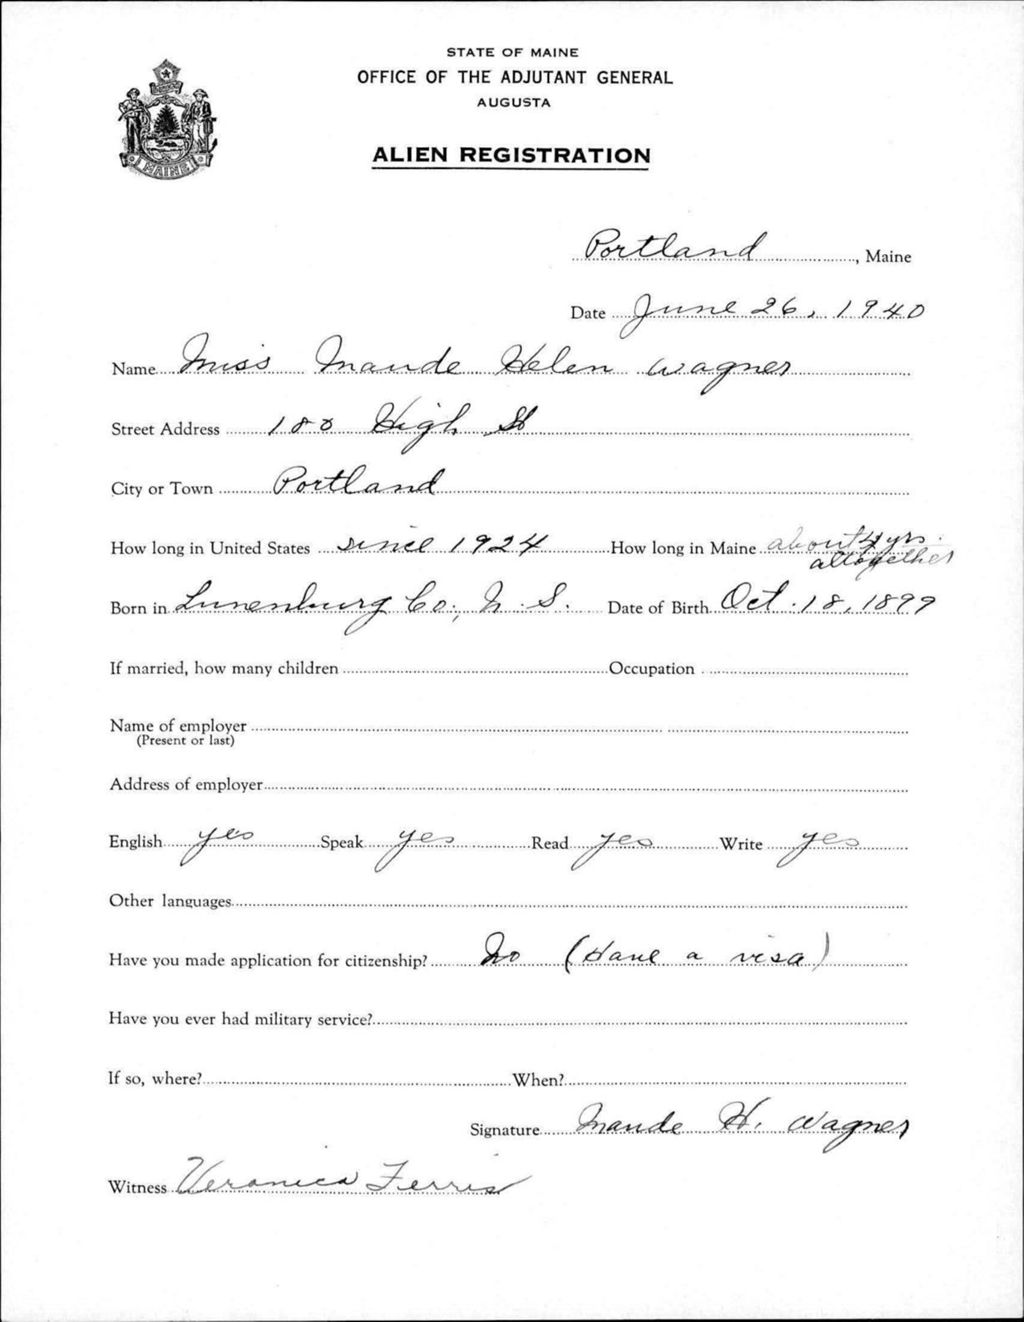 STATE OF MAINE
OFFICE OF THE ADJUTANT GENERAL
AUGUSTA
ALIEN REGISTRATION
MAINE
Portland, Maine
Date June 26, 1940
Name Miss Maude Helen Wagner
Street Address 188 High St
City or Town Portland
How long in United States since 1924 How long in Maine about 4 yrs. altogether
Born in Lunenburg Co; N.S. Date of Birth Oct. 18, 1899
If married, how many children Occupation
Name of employer
(Present or last)
Address of employer
English yes Speak yes Read yes Write yes
Other languages
Have you made application for citizenship? No (Have a visa)
Have you ever had military service?
If so, where? When?
Signature Maude H. Wagner
Witness Veronica Ferris